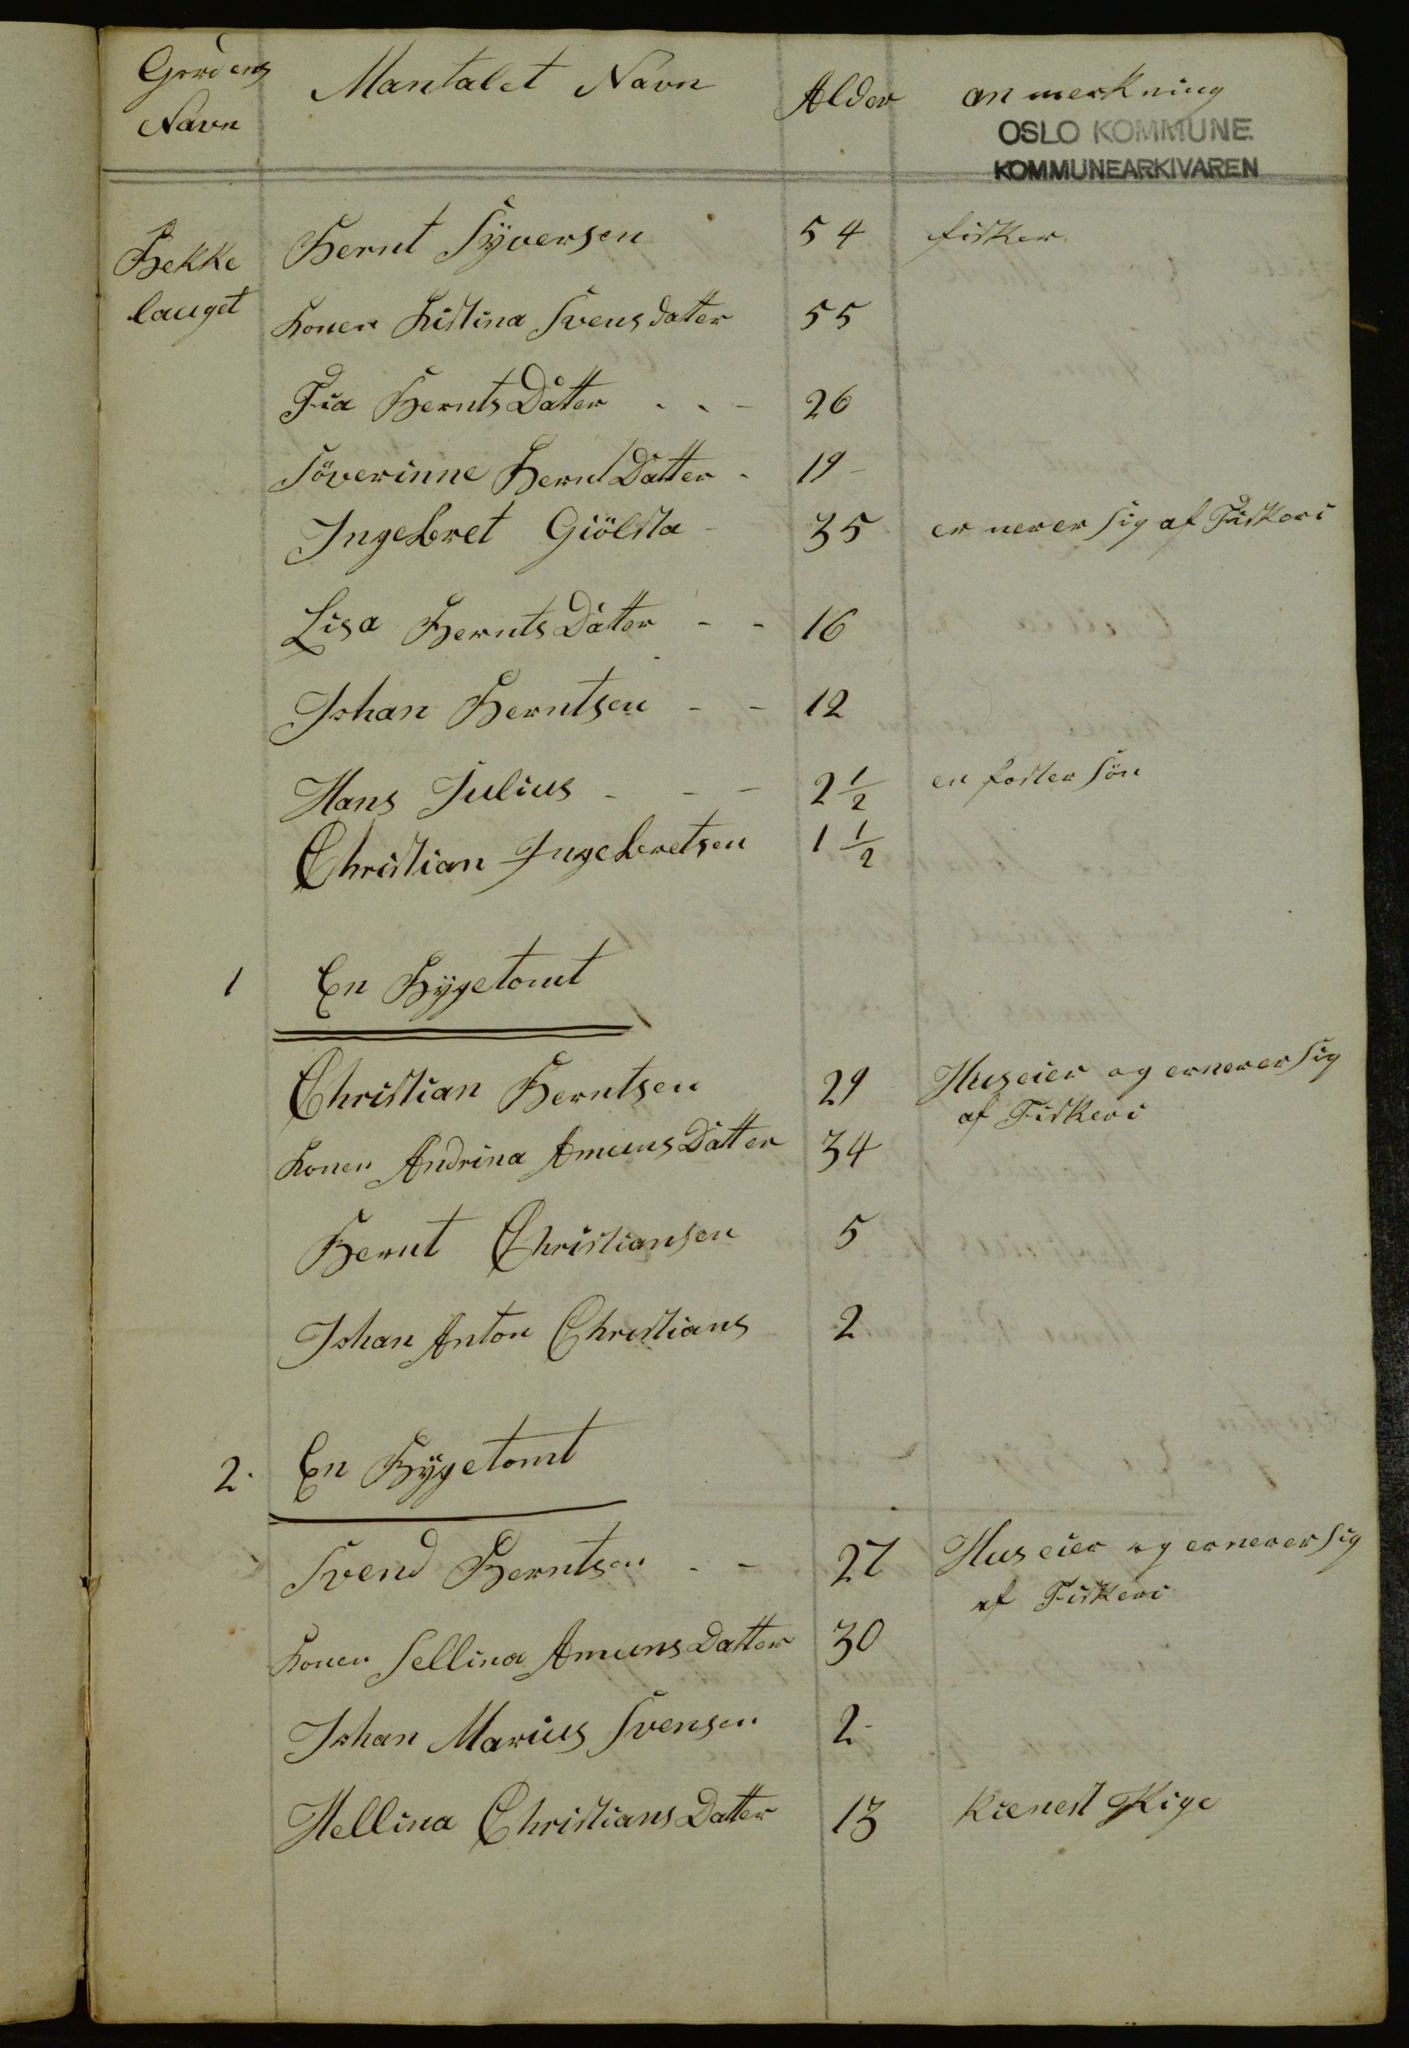 Gordens Navn
Mantalet Navn
Alder
anmerkning
OSLO KOMMUNE
KOMMUNEARKIVAREN
Bekke
lauget
Bernt Syversen 54 fisker
Konen Kistina Svensdatter 55
Fia Bernts Datter - - - 26
Söverinne Bernt Datter - 19 -
Ingebret Giölsta - 35 er nerer sig af Fiskeri
Lisa Bernts Datter - - 16
Johan Berntsen - - 12
Hans Julius - - - 2 1/2 en foster Sön
Christian Ingebretsen 1 1/2
1 En Bygetomt
Christian Berntsen 29 Huseier og ernerer sig
af Fiskeri
Konen Andrina Amuns Datter 34
Bernt Christiansen 5
Johan Anton Christians 2
2. En Bygetomt
Svend Berntsen - - 27 Huseier og ernerer sig
af Fiskeri
Konen Sellina Amuns Datter 30
Johan Marius Svensen 2 -
Hellina Christians Datter 13 Kienest Pige